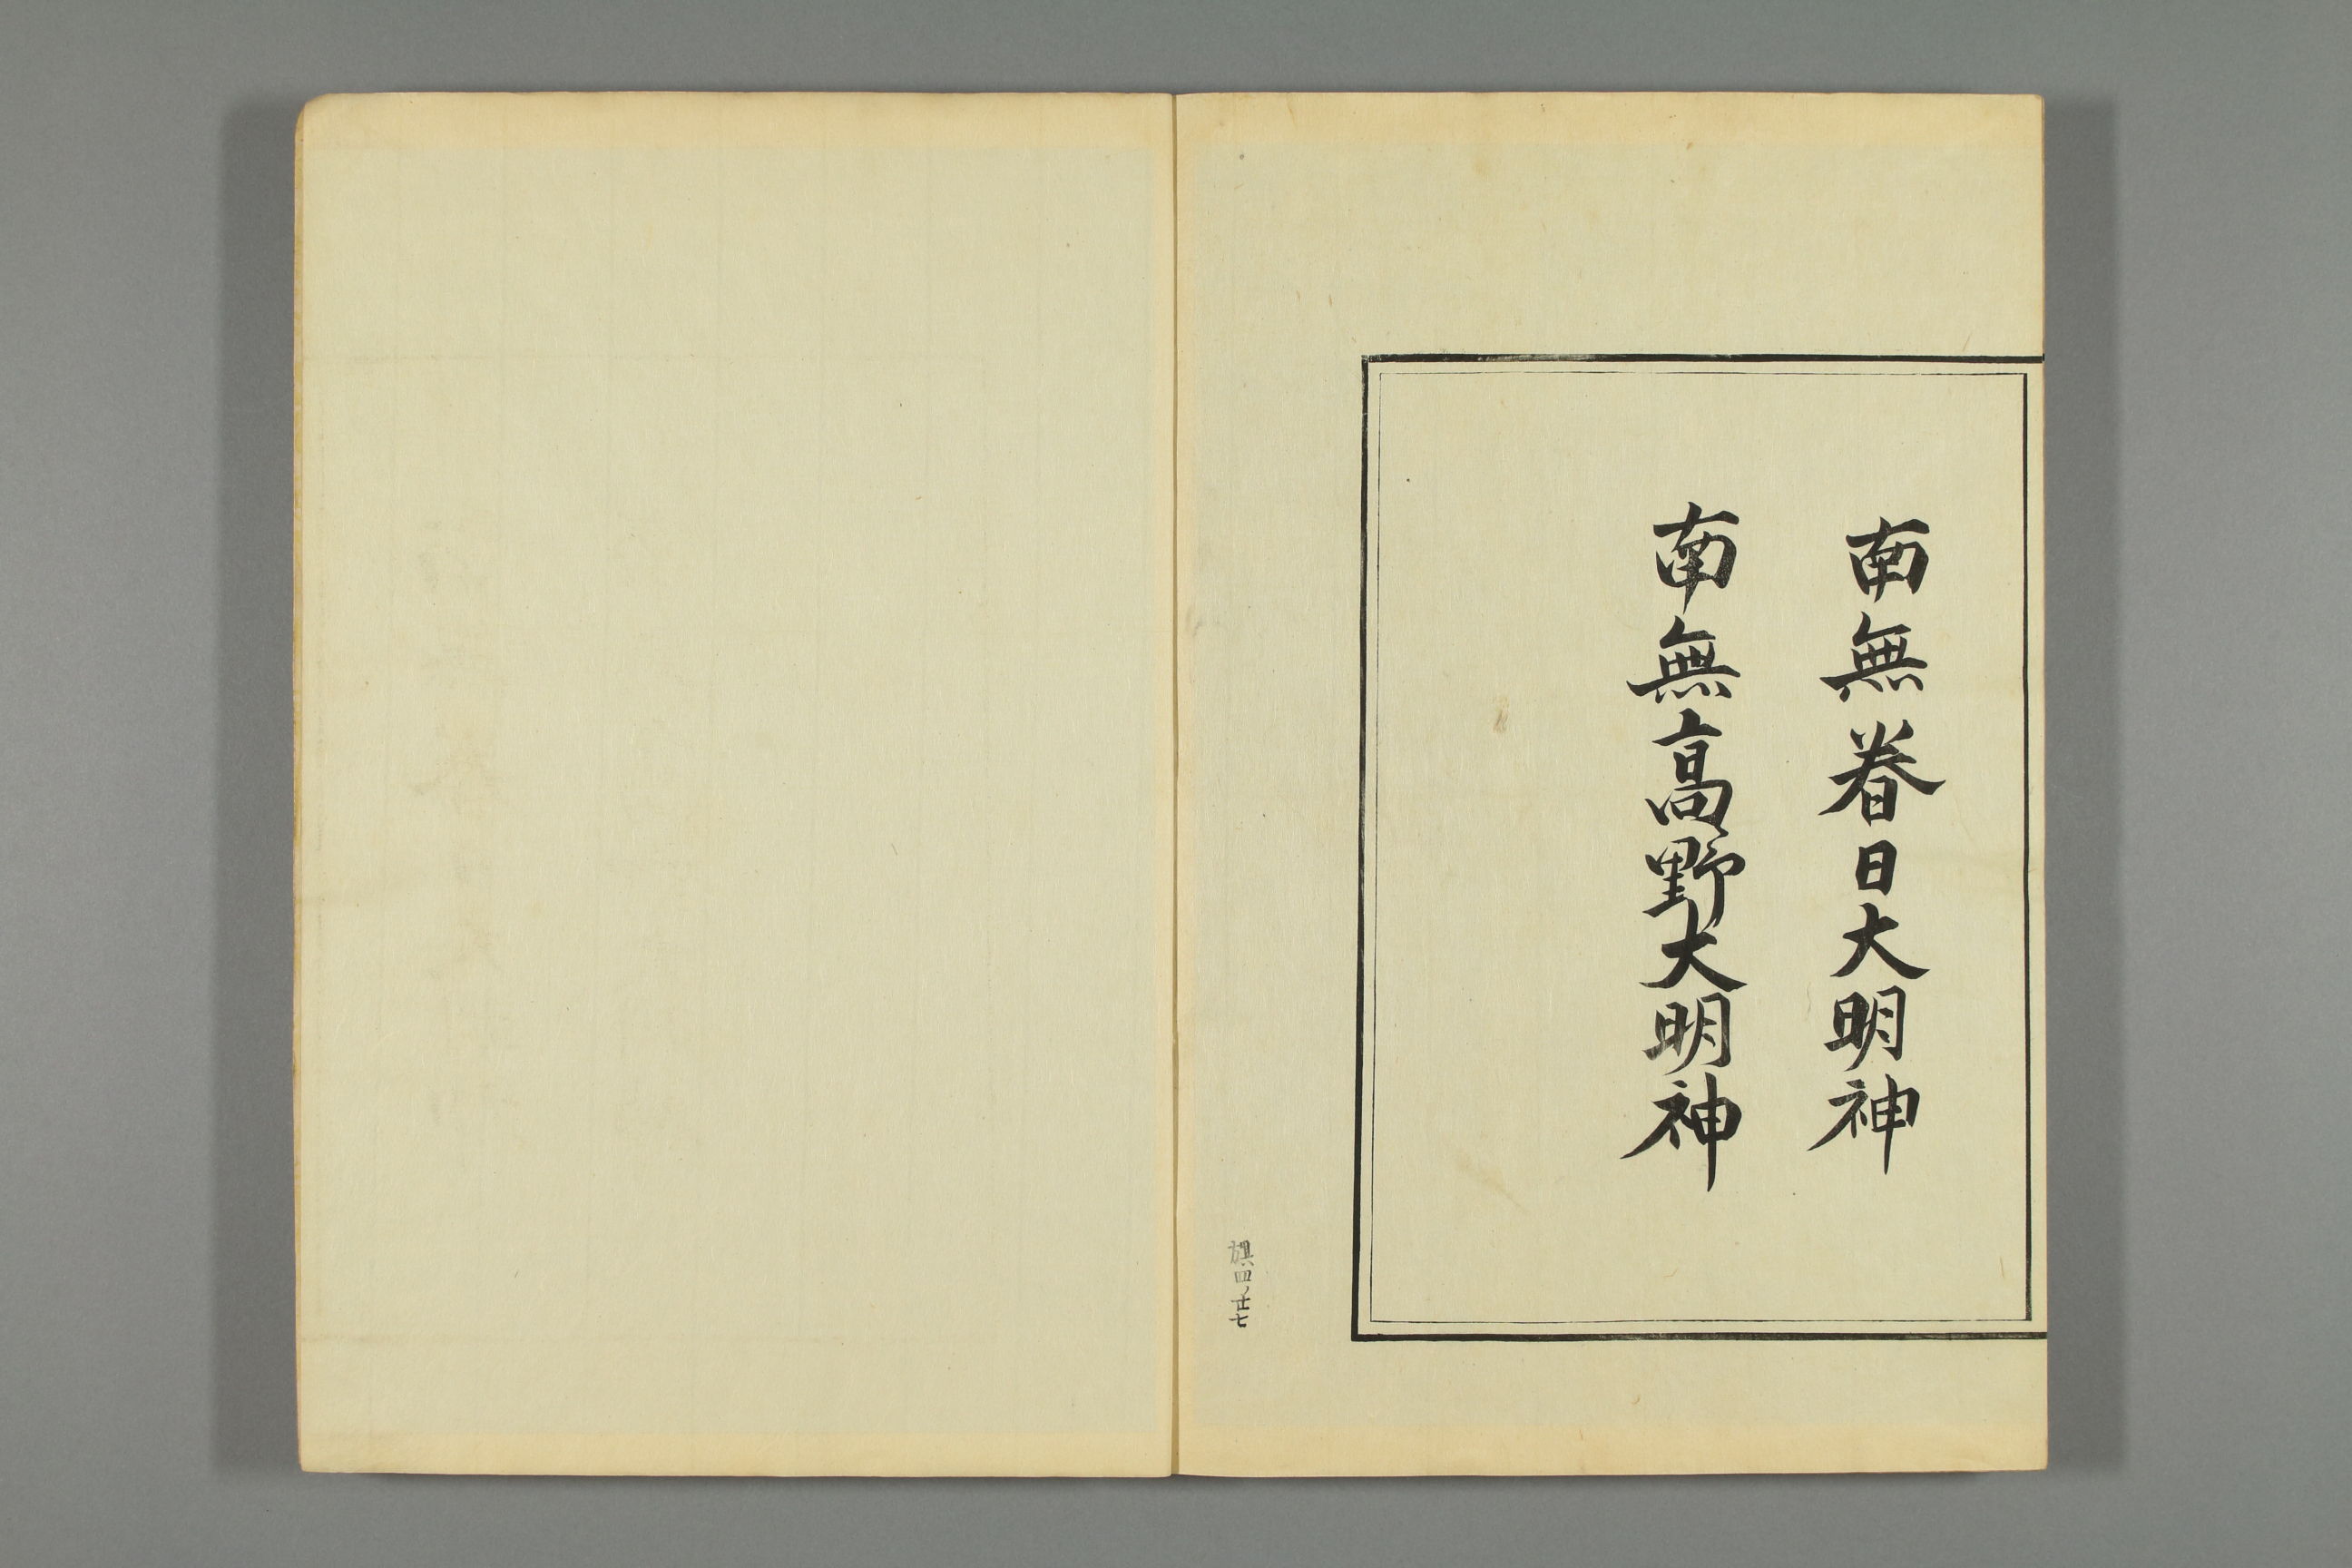 南無春日大明神
南無高野大明神
旗四ノ廿七